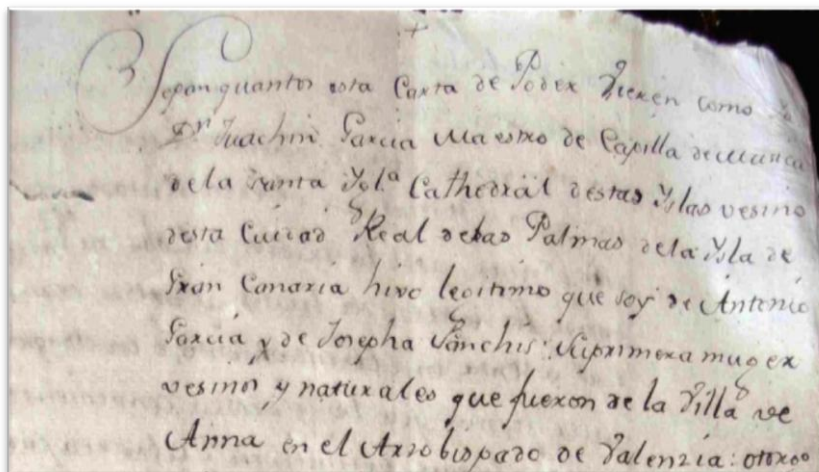 +
Sepan quantos esta Carta de Poder vieren como Yo
Dn. Juachin Garcia Maestro de Capilla de Musica
de la Santa Igl.ª Cathedral destas Yslas vesino
desta Ciudad Real de las Palmas de la Ysla de
Gran Canaria hixo legitimo que soy de Antonio
Garcia y de Josepha Sanchis: su primera muger
vesinos y naturales que fueron de la Villa de
Anna en el Arzobispado de Valenzia: otorgo